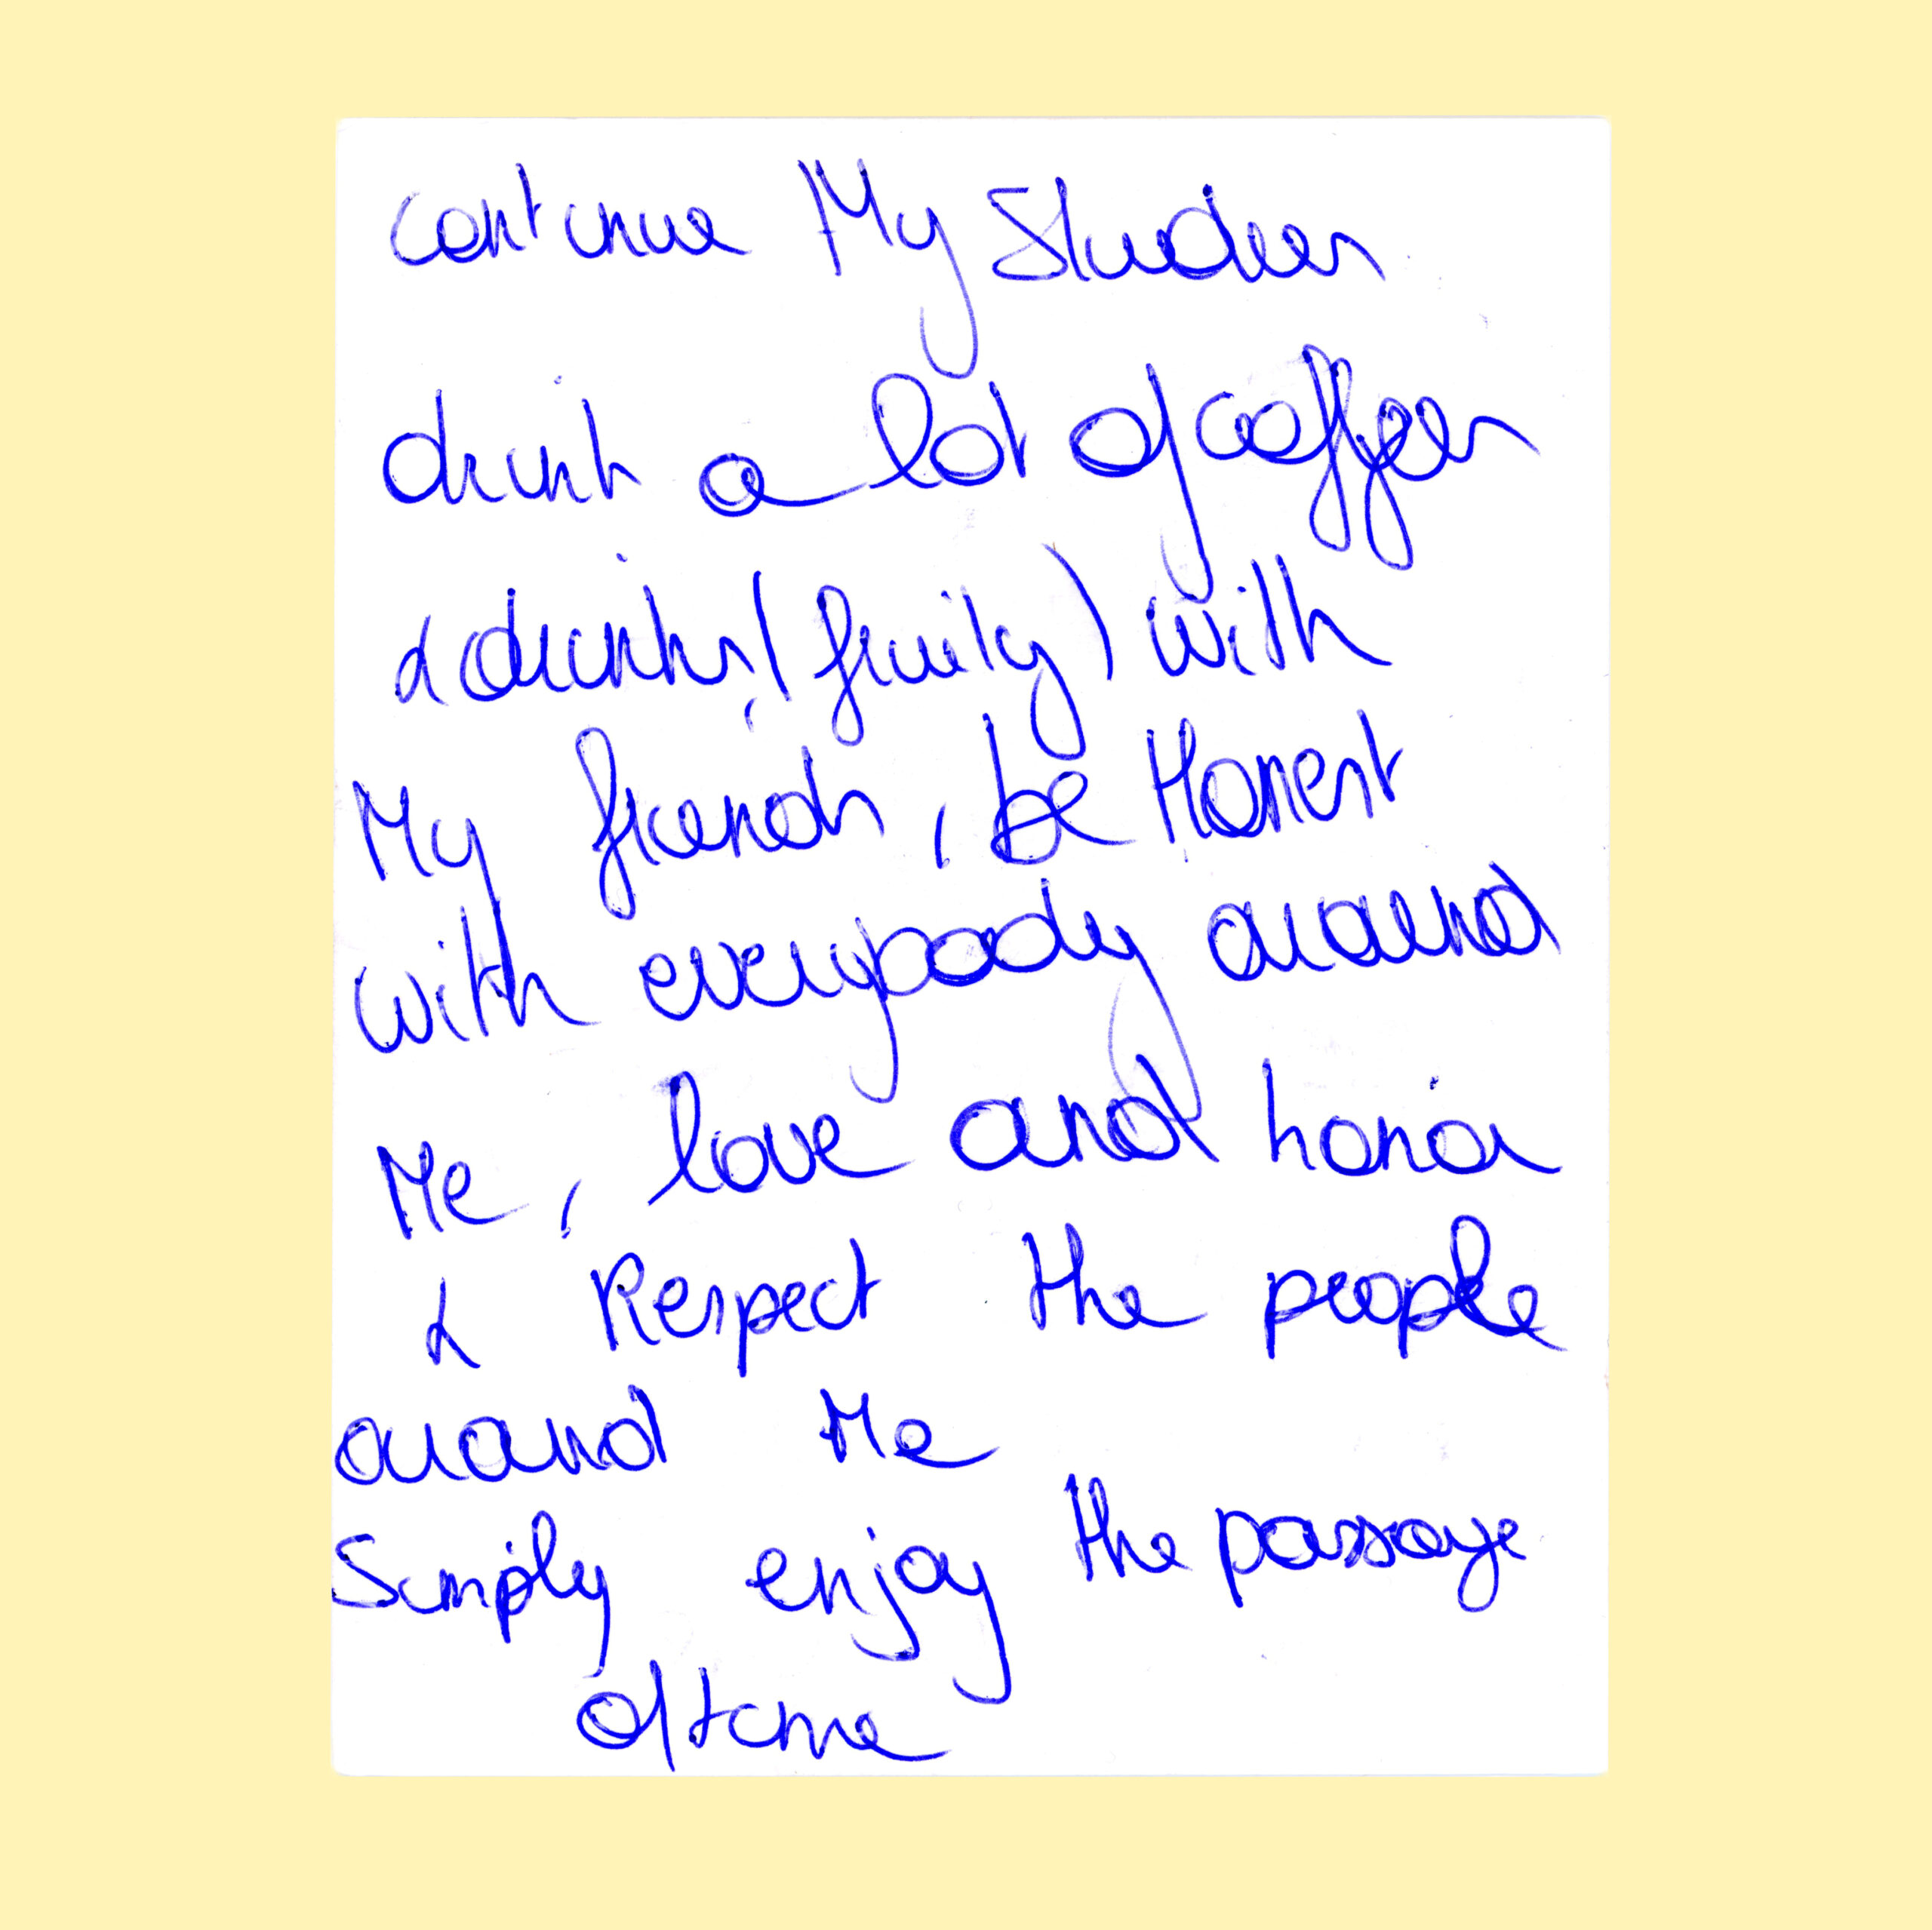 continue My Studies
drink a lot of coffees
& drinks (fruity) with
My friends, be Honest
with everybody around
Me, love and honor
& Respect the people
around Me
Simply enjoy the passage
of time